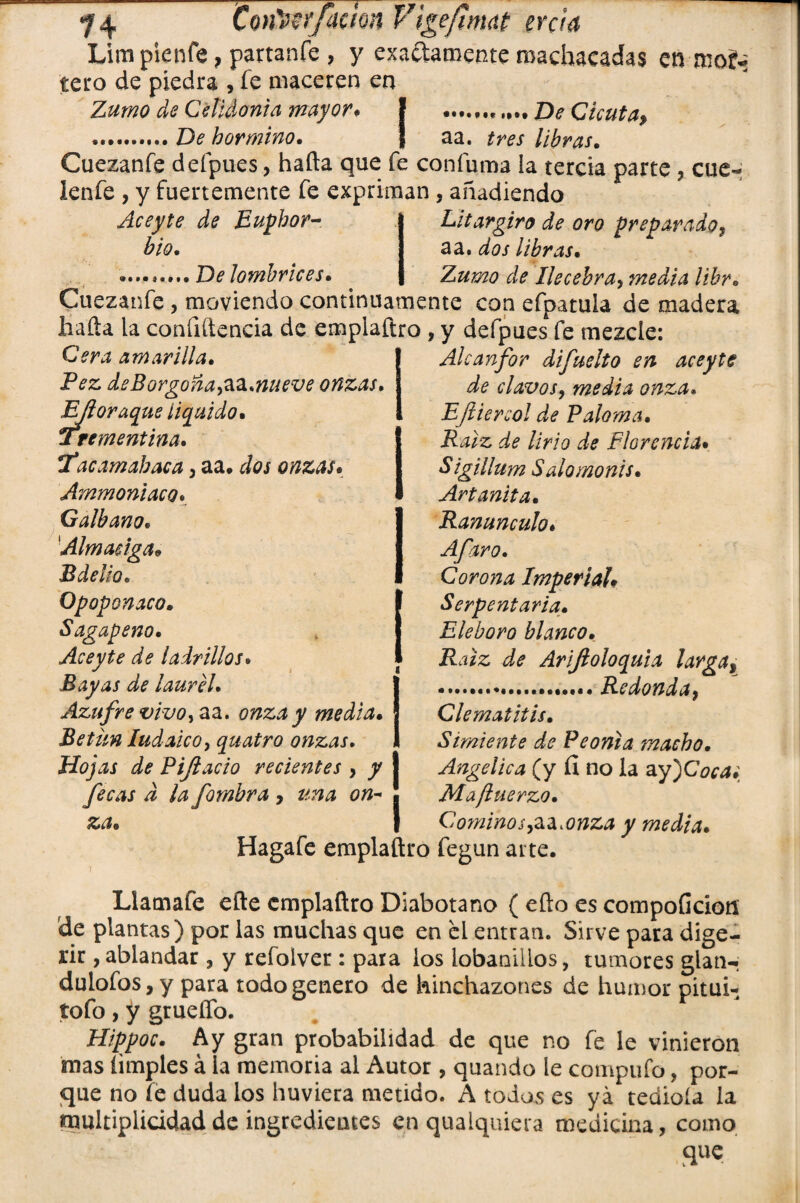 74 Conversacion Vigesimat ercia
Lim pienſe, partanſe, y exactamente machacadas en mor-
tero de piedra, ſe maceren en
Zumo de Celidonia mayor.
.......... De hormino.
.......... De Cicuta,
aa. tres libras.
Cuezanſe deſpues, haſta que ſe conſuma la tercia parte, cue-
lenſe, y fuertemente ſe expriman, añadiendo
Aceyte de Euphor-
bio.
.......... De lombrices.
Litargiro de oro preparado,
aa. dos libras.
Zumo de Ilecebra, media libr.
Cuezanſe, moviendo continuamente con eſpatula de madera
haſta la conſiſtencia de emplaſtro, y deſpues ſe mezcle:
Cera amarilla.
Pez de Borgoña, aa. nueve onzas.
Eſtoraque liquido.
Trementina.
Tacamahaca, aa. dos onzas.
Ammoniaco.
Galbano.
Almaciga.
Bdelio.
Opoponaco.
Sagapeno.
Aceyte de ladrillos.
Bayas de laurèl.
Azufre vivo, aa. onza y media.
Betùn Iudaico, quatro onzas.
Hojas de Piſtacio recientes, y
ſecas à la ſombra, una on-
za.
Alcanfor diſuelto en aceyte
de clavos, media onza.
Eſtiercol de Paloma.
Raìz de lirio de Florencia.
Sigillum Salomonis.
Artanita.
Ranunculo.
Aſaro.
Corona Imperial.
Serpentaria.
Eleboro blanco.
Raìz de Ariſtoloquia larga,
...................... Redonda,
Clematitis.
Simiente de Peonìa macho.
Angelica (y ſi no la ay) Coca.
Maſtuerzo.
Cominos, aa. onza y media.
Hagaſe emplaſtro ſegun arte.
Llamaſe eſte emplaſtro Diabotano (eſto es compoſicion
de plantas) por las muchas que en èl entran. Sirve para dige-
rir, ablandar, y reſolver: para los lobanillos, tumores glan-
duloſos, y para todo genero de hinchazones de humor pitui-
toſo, y grueſſo.
Hippoc. Ay gran probabilidad de que no ſe le vinieron
mas ſimples à la memoria al Autor, quando le compuſo, por-
que no ſe duda los huviera metido. A todos es yà tedioſa la
multiplicidad de ingredientes en qualquiera medicina, como
que